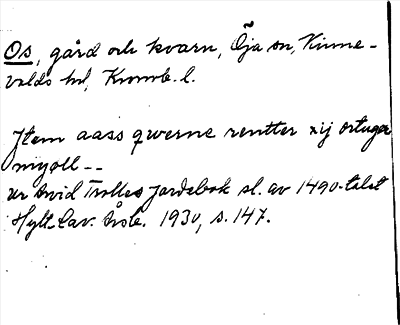 Os, gård och kvarn, Öja sn, Kinne-
valds hd, Kronob. l.
Jtem aass qwerne rentter xij ortuger
myøll --
ur Arvid Trolles Jordebok sl. av 1490-talet
Hylt.-Cav. Årsb. 1930, s. 147.